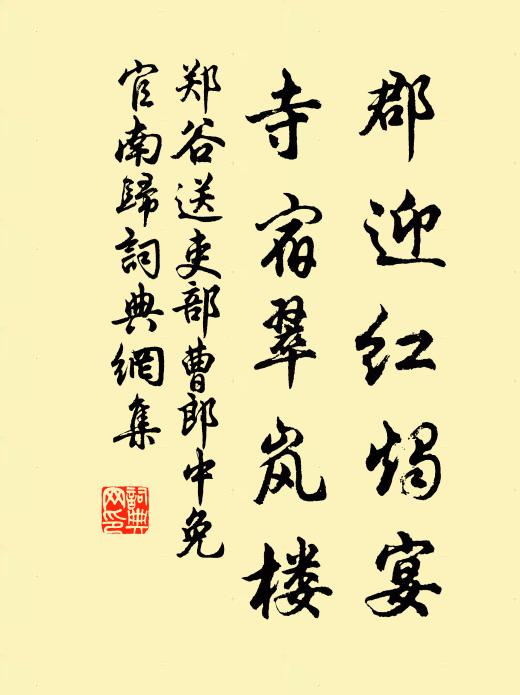 郡迎红烛宴
寺宿翠岚楼
郑谷送吏部曹郎中免
官南歸詞典網集
詞典
网印